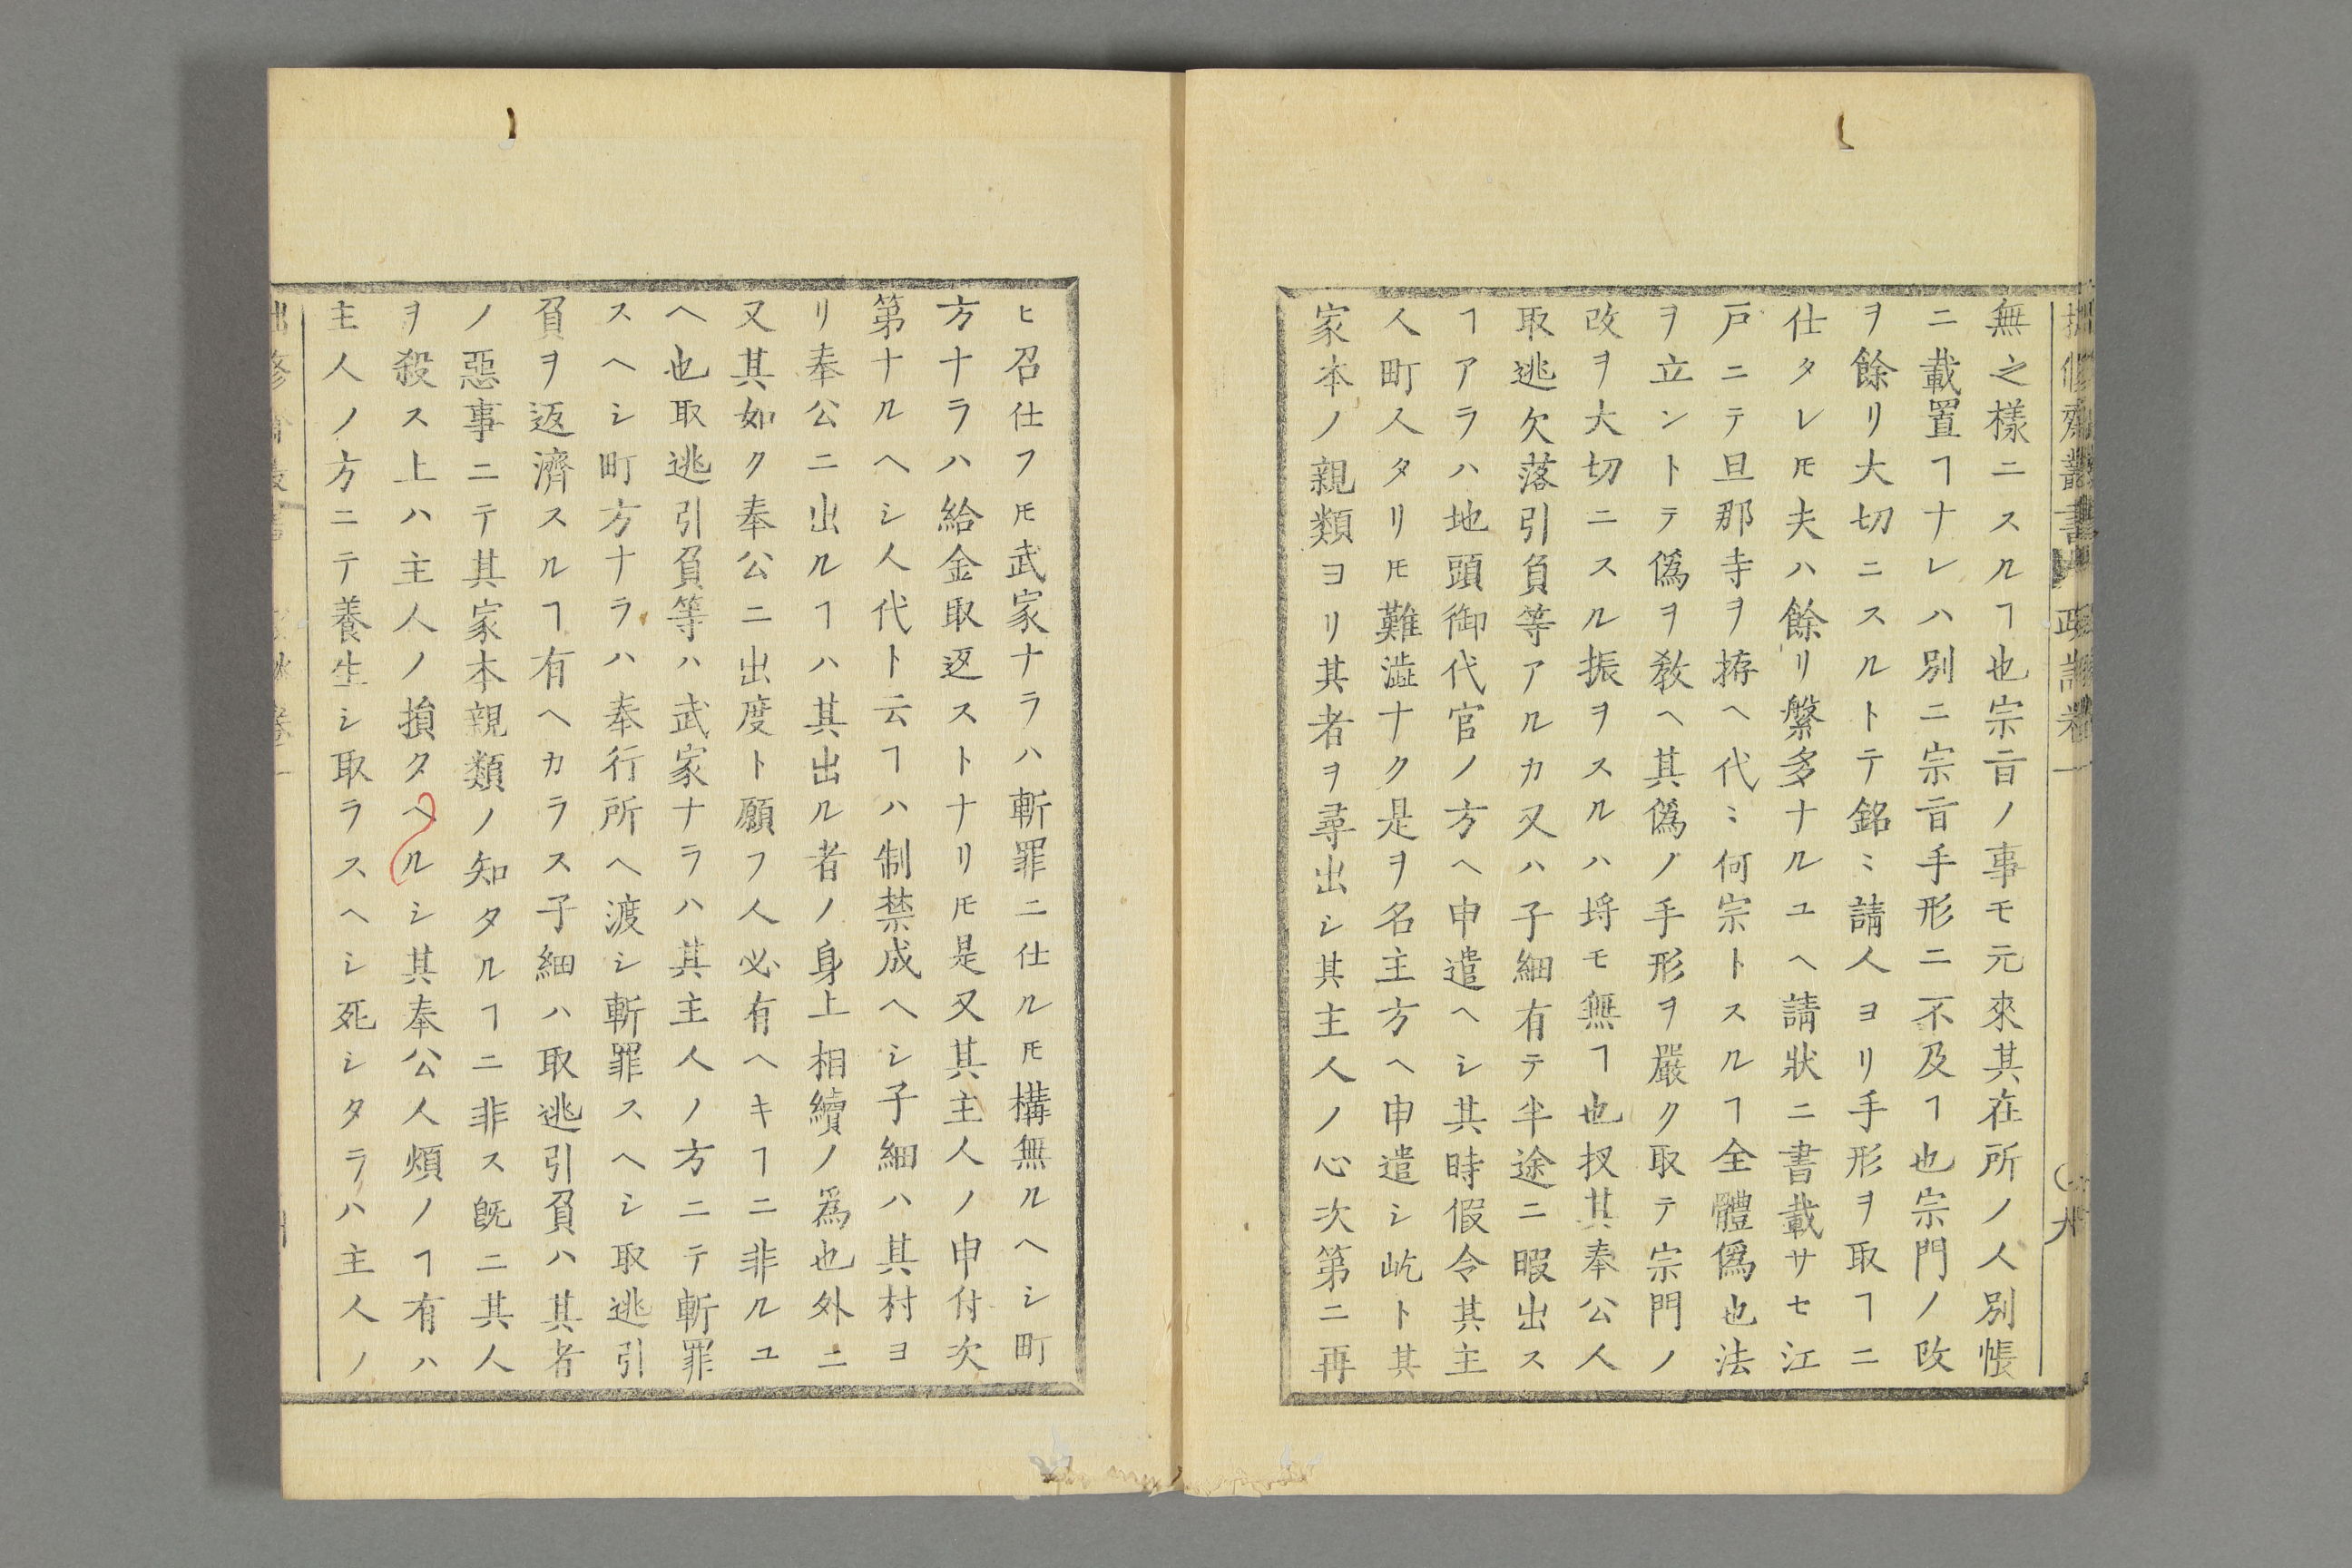 無之樣ニスルヿ也宗旨ノ事モ元來其在所ノ人別帳
ニ載置ヿナレハ別ニ宗旨手形ニ不及ヿ也宗門ノ改
ヲ餘リ大切ニスルトテ銘ミ請人ヨリ手形ヲ取ヿニ
仕タレ𪜈夫ハ餘リ繁多ナルユヘ請狀ニ書載サセ江
戸ニテ旦那寺ヲ拵ヘ代ミ何宗トスルヿ全體僞也法
ヲ立ントテ僞ヲ敎ヘ其僞ノ手形ヲ嚴ク取テ宗門ノ
改ヲ大切ニスル振ヲスルハ埒モ無ヿ也扠其奉公人
取逃欠落引負等アルカ又ハ子細有テ半途ニ暇出ス
ヿアラハ地頭御代官ノ方ヘ申遣ヘシ其時假令其主
人町人タリ𪜈難澁ナク是ヲ名主方ヘ申遣シ屹ト其
家本ノ親類ヨリ其者ヲ尋出シ其主人ノ心次第ニ再
ヒ召仕フ𪜈武家ナラハ斬罪ニ仕ル𪜈構無ルヘシ町
方ナラハ給金取返ストナリ𪜈是又其主人ノ申付次
第ナルヘシ人代ト云ヿハ制禁成ヘシ子細ハ其村ヨ
リ奉公ニ出ルヿハ其出ル者ノ身上相續ノ爲也外ニ
又其如ク奉公ニ出度ト願フ人必有ヘキヿニ非ルユ
ヘ也取逃引負等ハ武家ナラハ其主人ノ方ニテ斬罪
スヘシ町方ナラハ奉行所ヘ渡シ斬罪スヘシ取逃引
負ヲ返濟スルヿ有ヘカラス子細ハ取逃引負ハ其者
ノ惡事ニテ其家本親類ノ知タルヿニ非ス旣ニ其人
ヲ殺ス上ハ主人ノ損タヘルシ其奉公人煩ノヿ有ハ
主人ノ方ニテ養生シ取ラスヘシ死シタラハ主人ノ